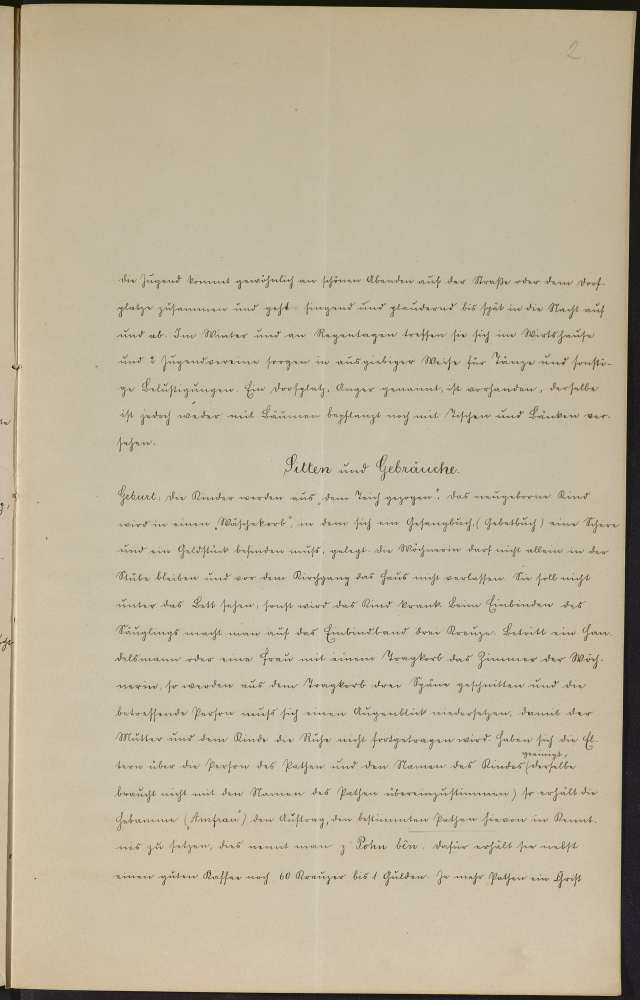 2
die Jugend kommt gewöhnlich an schönen Abenden auf der Straße oder dem Dorf-
platze zusammen und geht singend und plaudernd bis spät in die Nacht auf
und ab. Im Winter und an Regentagen treffen sie sich im Wirtshause
und 2 Jugendvereine sorgen in ausgiebiger Weise für Tänze und sonsti-
ge Belustigungen. Ein Dorfplatz, Anger genannt, ist vorhanden, derselbe
ist jedoch weder mit Bäumen bepflanzt noch mit Tischen und Bänken ver-
sehen.
Sitten und Gebräuche.
Geburt. Die Kinder werden aus „dem Teich gezogen“. Das neugeborne Kind
wird in einen „Wäschekorb“, in dem sich ein Gesangbuch, (Gebetbuch) eine Schere
und ein Geldstück befinden muß, gelegt. Die Wöchnerin darf nicht allein in der
Stube bleiben und vor dem Kirchgang das Haus nicht verlassen. Sie soll nicht
unter das Bett sehen, sonst wird das Kind krank. Beim Einbinden des
Säuglings macht man auf das Einbindband drei Kreuze. Betritt ein Han-
delsmann oder eine Frau mit einem Tragkorb das Zimmer der Wöch-
nerin, so werden aus dem Tragkorb drei Späne geschnitten und die
betreffende Person muß sich einen Augenblick niedersetzen, damit der
Mutter und dem Kinde die Ruhe nicht fortgetragen wird. Haben sich die El-
tern über die Person des Pathen und den Namen des Kindes geeinigt, (derselbe
braucht nicht mit den Namen des Pathen übereinzustimmen) so erhält die
Hebamme („Amfrau“) den Auftrag, den bestimmten Pathen hievon in Kennt-
nis zu setzen, dies nennt man z' Pohn bin. Dafür erhält sie nebst
einem guten Kaffee noch 60 Kreuzer bis 1 Gulden. Je mehr Pathen ein Christ